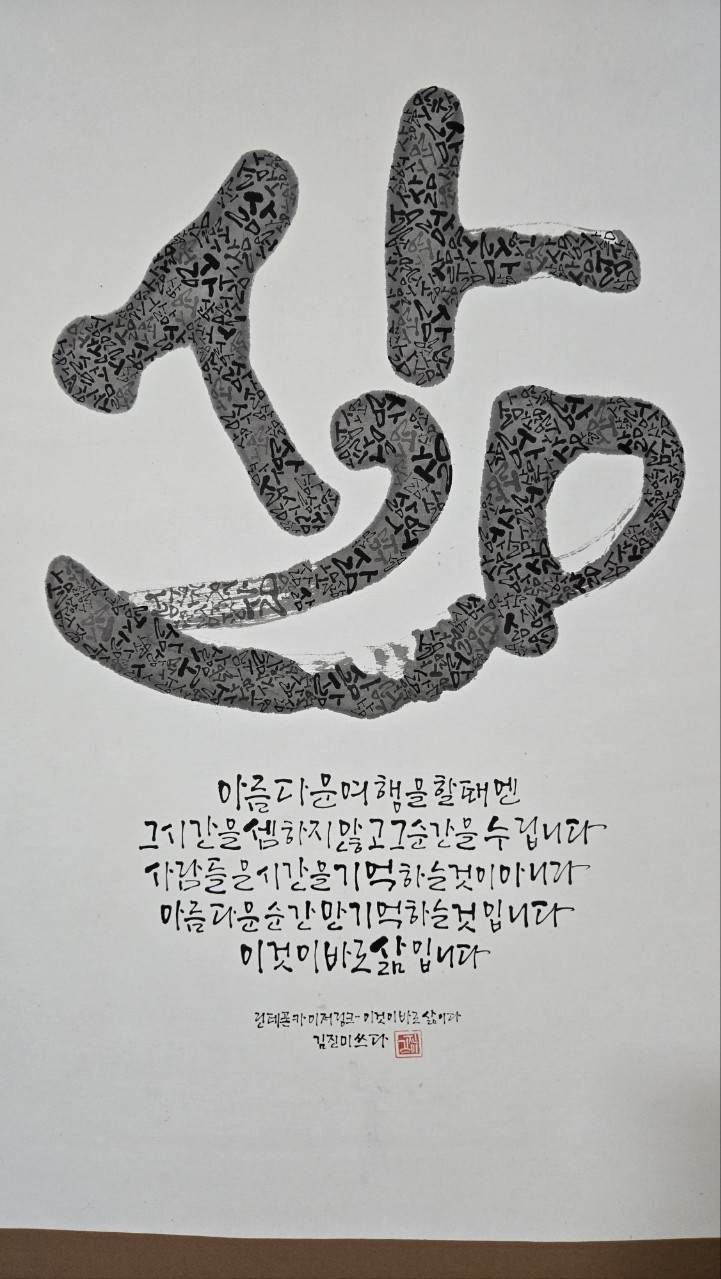 삶
아름다운여행을할때엔
그시간을셈하지않고그순간을누립니다
사람들은시간을기억하는것이아니라
아름다운순간만기억하는것입니다
이것이바로삶입니다
린데폰카이저링크-이것이바로삶이다
김진미쓰다